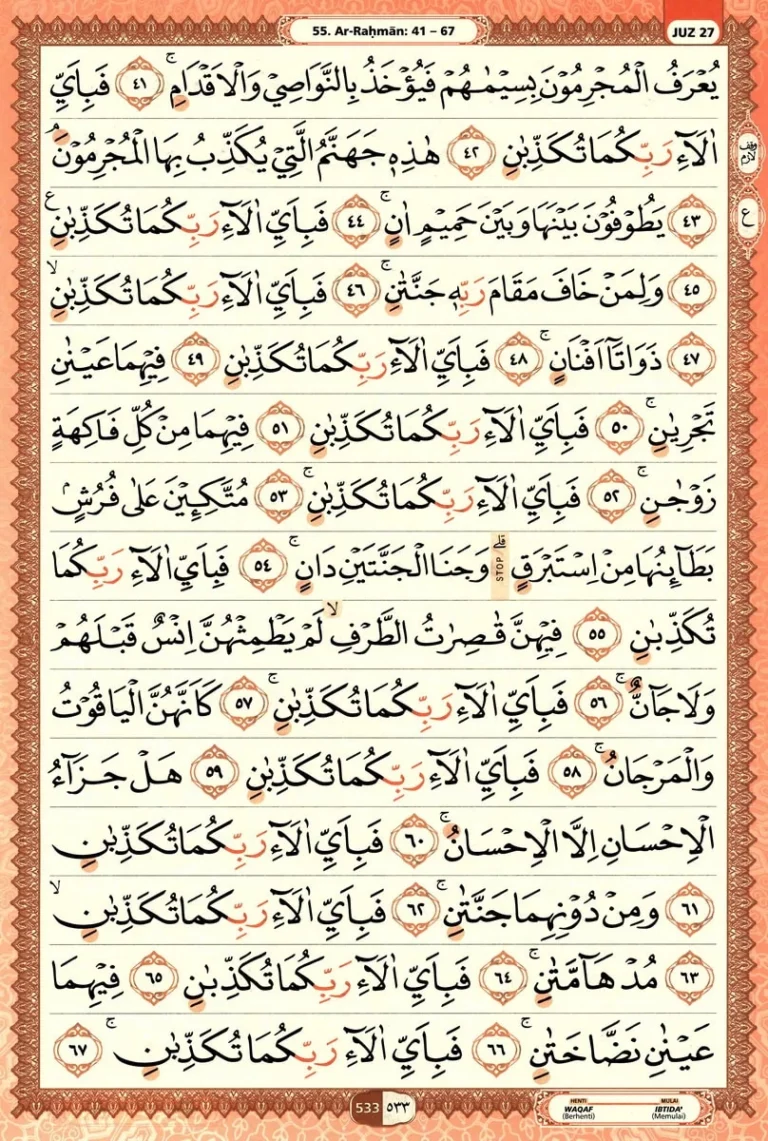 55. Ar-Raḥmān: 41 – 67
JUZ 27
يُعْرَفُ الْمُجْرِمُوْنَ بِسِيْمٰىهُمْ فَيُؤْخَذُ بِالنَّوَاصِيْ وَالْاَقْدَامِۚ ٤١ فَبِاَيِّ
اٰلَاۤءِ رَبِّكُمَا تُكَذِّبٰنِ ٤٢ هٰذِهٖ جَهَنَّمُ الَّتِيْ يُكَذِّبُ بِهَا الْمُجْرِمُوْنَۘ
وقف لازم
٤٣ يَطُوْفُوْنَ بَيْنَهَا وَبَيْنَ حَمِيْمٍ اٰنٍۚ ٤٤ فَبِاَيِّ اٰلَاۤءِ رَبِّكُمَا تُكَذِّبٰنِ ࣖ
ع
٤٥ وَلِمَنْ خَافَ مَقَامَ رَبِّهٖ جَنَّتٰنِۚ ٤٦ فَبِاَيِّ اٰلَاۤءِ رَبِّكُمَا تُكَذِّبٰنِۙ
٤٧ ذَوَاتَآ اَفْنَانٍۚ ٤٨ فَبِاَيِّ اٰلَاۤءِ رَبِّكُمَا تُكَذِّبٰنِ ٤٩ فِيْهِمَا عَيْنٰنِ
تَجْرِيٰنِۚ ٥٠ فَبِاَيِّ اٰلَاۤءِ رَبِّكُمَا تُكَذِّبٰنِ ٥١ فِيْهِمَا مِنْ كُلِّ فَاكِهَةٍ
زَوْجٰنِۚ ٥٢ فَبِاَيِّ اٰلَاۤءِ رَبِّكُمَا تُكَذِّبٰنِۚ ٥٣ مُتَّكِـِٕيْنَ عَلٰى فُرُشٍۢ
بَطَاۤىِٕنُهَا مِنْ اِسْتَبْرَقٍۗ STOP وَجَنَا الْجَنَّتَيْنِ دَانٍۚ ٥٤ فَبِاَيِّ اٰلَاۤءِ رَبِّكُمَا
تُكَذِّبٰنِ ٥٥ فِيْهِنَّ قٰصِرٰتُ الطَّرْفِۙ لَمْ يَطْمِثْهُنَّ اِنْسٌ قَبْلَهُمْ
وَلَا جَاۤنٌّۚ ٥٦ فَبِاَيِّ اٰلَاۤءِ رَبِّكُمَا تُكَذِّبٰنِۚ ٥٧ كَاَنَّهُنَّ الْيَاقُوْتُ
وَالْمَرْجَانُۚ ٥٨ فَبِاَيِّ اٰلَاۤءِ رَبِّكُمَا تُكَذِّبٰنِ ٥٩ هَلْ جَزَاۤءُ
الْاِحْسَانِ اِلَّا الْاِحْسَانُۚ ٦٠ فَبِاَيِّ اٰلَاۤءِ رَبِّكُمَا تُكَذِّبٰنِ
٦١ وَمِنْ دُوْنِهِمَا جَنَّتٰنِۚ ٦٢ فَبِاَيِّ اٰلَاۤءِ رَبِّكُمَا تُكَذِّبٰنِۙ
٦٣ مُدْهَاۤمَّتٰنِۚ ٦٤ فَبِاَيِّ اٰلَاۤءِ رَبِّكُمَا تُكَذِّبٰنِ ٦٥ فِيْهِمَا
عَيْنٰنِ نَضَّاخَتٰنِۚ ٦٦ فَبِاَيِّ اٰلَاۤءِ رَبِّكُمَا تُكَذِّبٰنِۚ ٦٧
533 ٥٣٣
HENTI WAQAF (Berhenti)
MULAI IBTIDA' (Memulai)